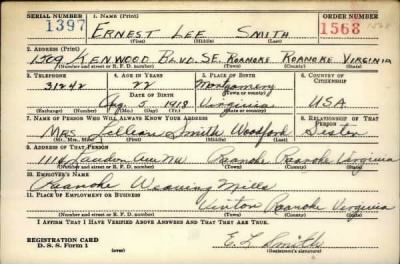 SERIAL NUMBER 1. NAME (Print) ORDER NUMBER
1397 ERNEST LEE SMITH 1568 1568
(First) (Middle) (Last)
2. ADDRESS (Print)
1309 KENWOOD BLVD. SE. ROANOKE ROANOKE VIRGINIA
(Number and street or R. F. D. number) (Town) (County) (State)
3. TELEPHONE 4. AGE IN YEARS 5. PLACE OF BIRTH 6. COUNTRY OF CITIZENSHIP
31242 22 Montgomery
DATE OF BIRTH (Town or county)
Aug 5 1918 Virginia USA
(Exchange) (Number) (Mo.) (Day) (Yr.) (State or country)
7. NAME OF PERSON WHO WILL ALWAYS KNOW YOUR ADDRESS 8. RELATIONSHIP OF THAT PERSON
Mrs. Lillian Smith Woodford Sister
(Mr., Mrs., Miss) (First) (Middle) (Last)
9. ADDRESS OF THAT PERSON
Ave NW Roanoke Roanoke Virginia
(Number and street or R. F. D. number) (Town) (County) (State)
10. EMPLOYER'S NAME
Roanoke Weaving Mills
11. PLACE OF EMPLOYMENT OR BUSINESS
Vinton Roanoke Virginia
(Number and street or R. F. D. number) (Town) (County) (State)
I AFFIRM THAT I HAVE VERIFIED ABOVE ANSWERS AND THAT THEY ARE TRUE.
REGISTRATION CARD E. L. Smith
D. S. S. Form 1 (over) (Registrant's signature)